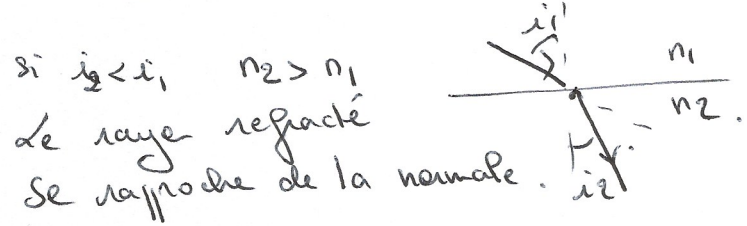 si i2 < i1 n2 > n1
Le rayon refracté
Se rapproche de la normale.
i1
n1
n2
i2